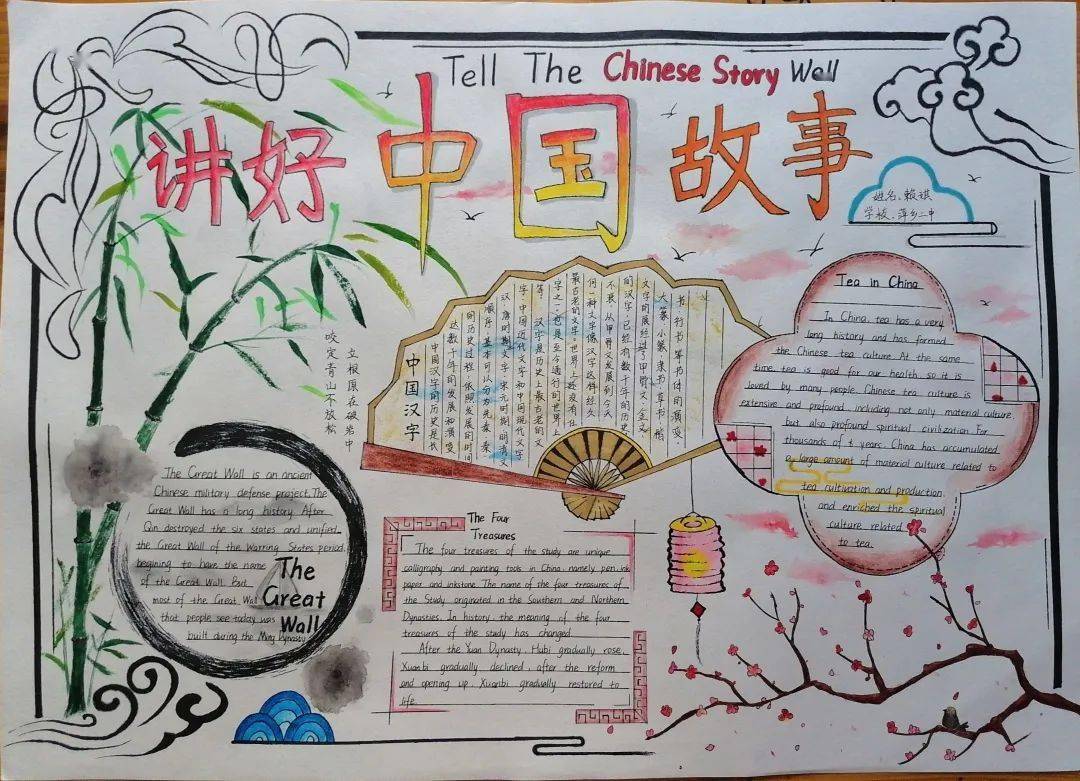 Tell The Chinese Story Well
讲好中国故事
姓名、赖琪
学校、萍乡二中
咬定青山不放松
立根原在破岩中
中国汉字
中国汉字的历史是长
达数千年的发展和演变
的历史过程.依照发展的时间
顺序,基本可以分为先秦、秦
汉、唐时期文字,宋元时期明清文
字,中国近代文字和中国现代文字
等. 汉字是历史上最古老的文
字之一,也是至今通行的世界上
最古老的文字,世界上还没有任
何一种文字像汉字这样经久
不衰,从甲骨文发展到今天
的汉字,已经有数千年的历史.
文字的发展经过了甲骨文、金文
大篆、小篆、隶书、草书、楷
书、行书等书体的演变.
Tea in China
In China, tea has a very
long history and has formed
the Chinese tea culture. At the same
time, tea is good for our health, so it is
loved by many people. Chinese tea culture is
extensive and profound, including not only material culture,
but also profound spiritual civilization. For
thousands of t years, China has accumulated
a large amount of material culture related to
tea cultivation and production,
and enriched the spiritual
culture related
to tea.
The Great Wall is an ancient
Chinese military defense project. The
Great Wall has a long history. After
Qin destroyed the six states and unified
the Great Wall of the Warring States period,
begining to have the name
of the Great Wall. But
most of the Great Wal
that people see today was
built during the Ming Dynasty
The
Great
Wall
The Four
Treasures
The four treasures of the study are unique
calligraphy and painting tools in China, namely pen, ink
paper and inkstone. The name of the four treasures of
the Study originated in the Southern and Northern
Dynasties. In history, the meaning of the four
treasures of the study has changed.
After the Yuan Dynasty, Hubi gradually rose,
Xuanbi gradually declined, after the reform
and opening up, Xuanbi gradually restored to
life.